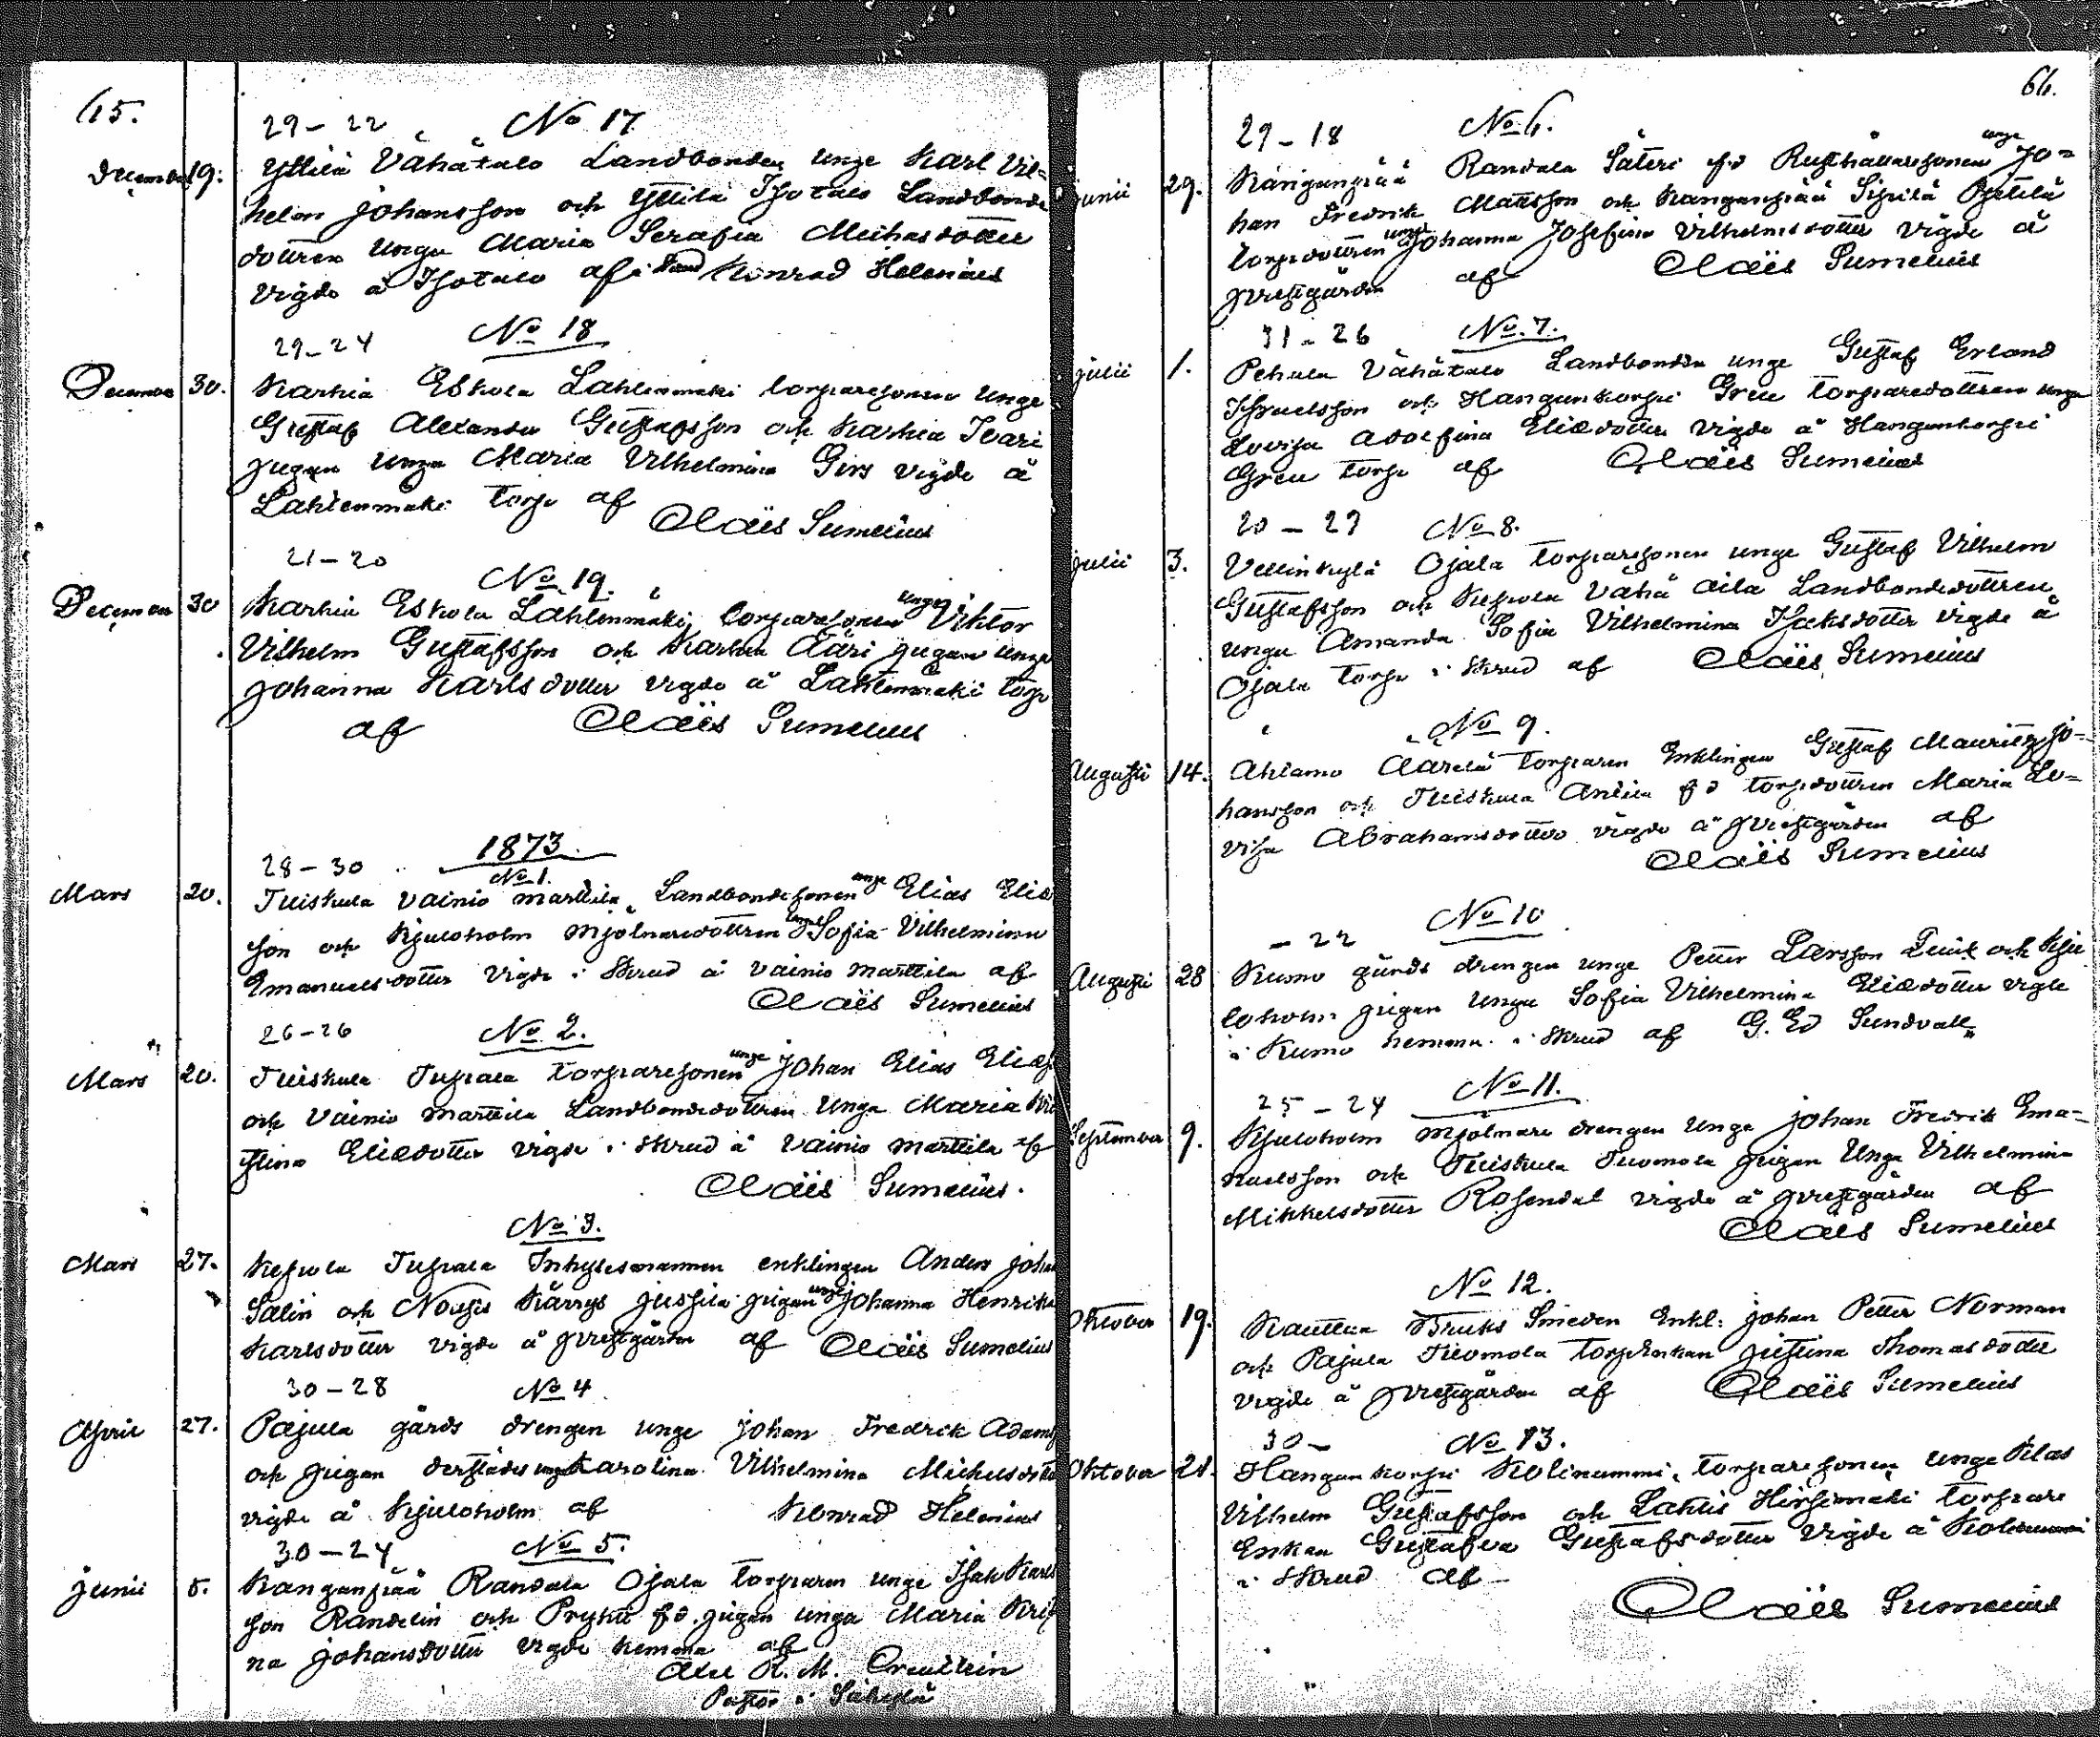 65.
29-22 No 17
December 19. Yttilä Vähätalo Landbonden unge Karl Vil=
helm Johansson och Yttilä Isotalo Landbonde
dottren unga Maria Serafia Michasdotter
vigde å Isotalo af Konrad Helenius
29-24 No 18
December 30. Karhia Eskola Lahtenmäki torparesonen unge
Gustaf Alexander Gustafsson och Karhia Ivari
pigan unga Maria Vilhelmina Girs vigde å
Lahtenmäki torp af
Claës Sumelius
21-20
No 19.
December 30 Karhia Eskola Lahtenmäki torparesonen unge Viktor
Vilhelm Gustafsson och Karhia Ääri pigan unga
Johanna Karlsdotter vigde å Lahtenmäki torp
af Claës Sumelius
1873.
28-30
No 1.
Mars 20. Tuiskula Vainio Marttila Landbondesonen unge Elias Eliæ
son och Kjuloholm Mjölnaredottren unga Sofia Vilhelmina
Emanuelsdotter vigde i Skrud å Vainio Marttila af
Claës Sumelius
26-26 No 2.
Mars 20. Tuiskula Tupala torparesonen unge Johan Elias Eliæs
och Vainio Marttila Landbondedottren unga Maria Kri
stina Eliædotter vigde i Skrud å Vainio Marttila af
Claës Sumelius.
No 3.
Mars 27. Kepola Tupala Inhysesmannen enklingen Anders Johan
Salin och Nousis Kärrys Jussila pigan unga Johanna Henrika
Karlsdotter vigde å prestgården af Claës Sumelius
30-28 No 4
April 27. Pajula gårds drengen unge Johan Fredrik Adams
och pigan derstädes unga Karolina Vilhelmina Michelsdotter
vigde å Kjuloholm af Konrad Helenius
30-24 No 5.
Junii 5. Kanganpää Randala Ojala torparen unge Isak Karls
son Randelin och Pryhti f d pigan unga Maria Kris
na Johansdotter vigde hemma af
Axel R. M. Creutlein
Pastor i Säkylä
66.
29-18 No 6.
Junii 29. Kanganpää Randala Säteri f d Rusthållaresonen unge Jo=
han Fredrik Matsson och Kanganpää Sipilä Ojetilä
torpdottren unga Johanna Josefina Vilhelmsdotter vigde å
prestgården af Claës Sumelius
31-26 No 7.
Julii 1. Pehula Vähätalo Landbonden unge Gustaf Erland
Israelsson och Hangunkorpi Greu torparedottren unga
Lovisa Adolfina Eliædotter vigde å Hangunkorpi
Greu torp af Claës Sumelius
20-27 No 8.
Julii 3. Vellinkylä Ojala torparesonen unge Gustaf Vilhelm
Gustafsson och Kepola Vähä Äilä Landbondedottren
unga Amanda Sofia Vilhelmina Isaksdotter vigde å
Ojala torp i Skrud af Claës Sumelius
No 9.
Augusti 14. Ahlamo Äärelä torparen Enklingen Gustaf Mauritz Jo=
hansson och Tuiskula Anttila f d torpdottren Maria Lo=
visa Abrahamsdotter vigde å prestgården af
Claës Sumelius
No 10
-22
Augusti 28 Kumo gårds drengen unge Petter Larsson Quick och Kju
loholm pigan unga Sofia Vilhelmina Eliædotter vigde
i Kumo hemma i Skrud af G. Ed Sundvall
25-24 No 11.
September 9. Kjuloholm Mjölnare drengen unge Johan Fredrik Ema=
nuelsson och Tuiskula Tuomola pigan unga Vilhelmina
Mikkelsdotter Rosendal vigde å prestgården af
Claës Sumelius
No 12.
Oktober 19. Kauttua Bruks Smeden Enkl: Johan Petter Norman
och Pajula Tuomola torpEnkan Justina Thomasdotter
vigde å prestgården af Claës Sumelius
30- No 13.
Oktober 21. Hangunkorpi Kolinummi torparesonen unge Klas
Vilhelm Gustafsson och Lahtis Hirsimäki torpare
Enkan Gustafva Gustafsdotter vigde å Kolinummi
i Skrud af
Claës Sumelius